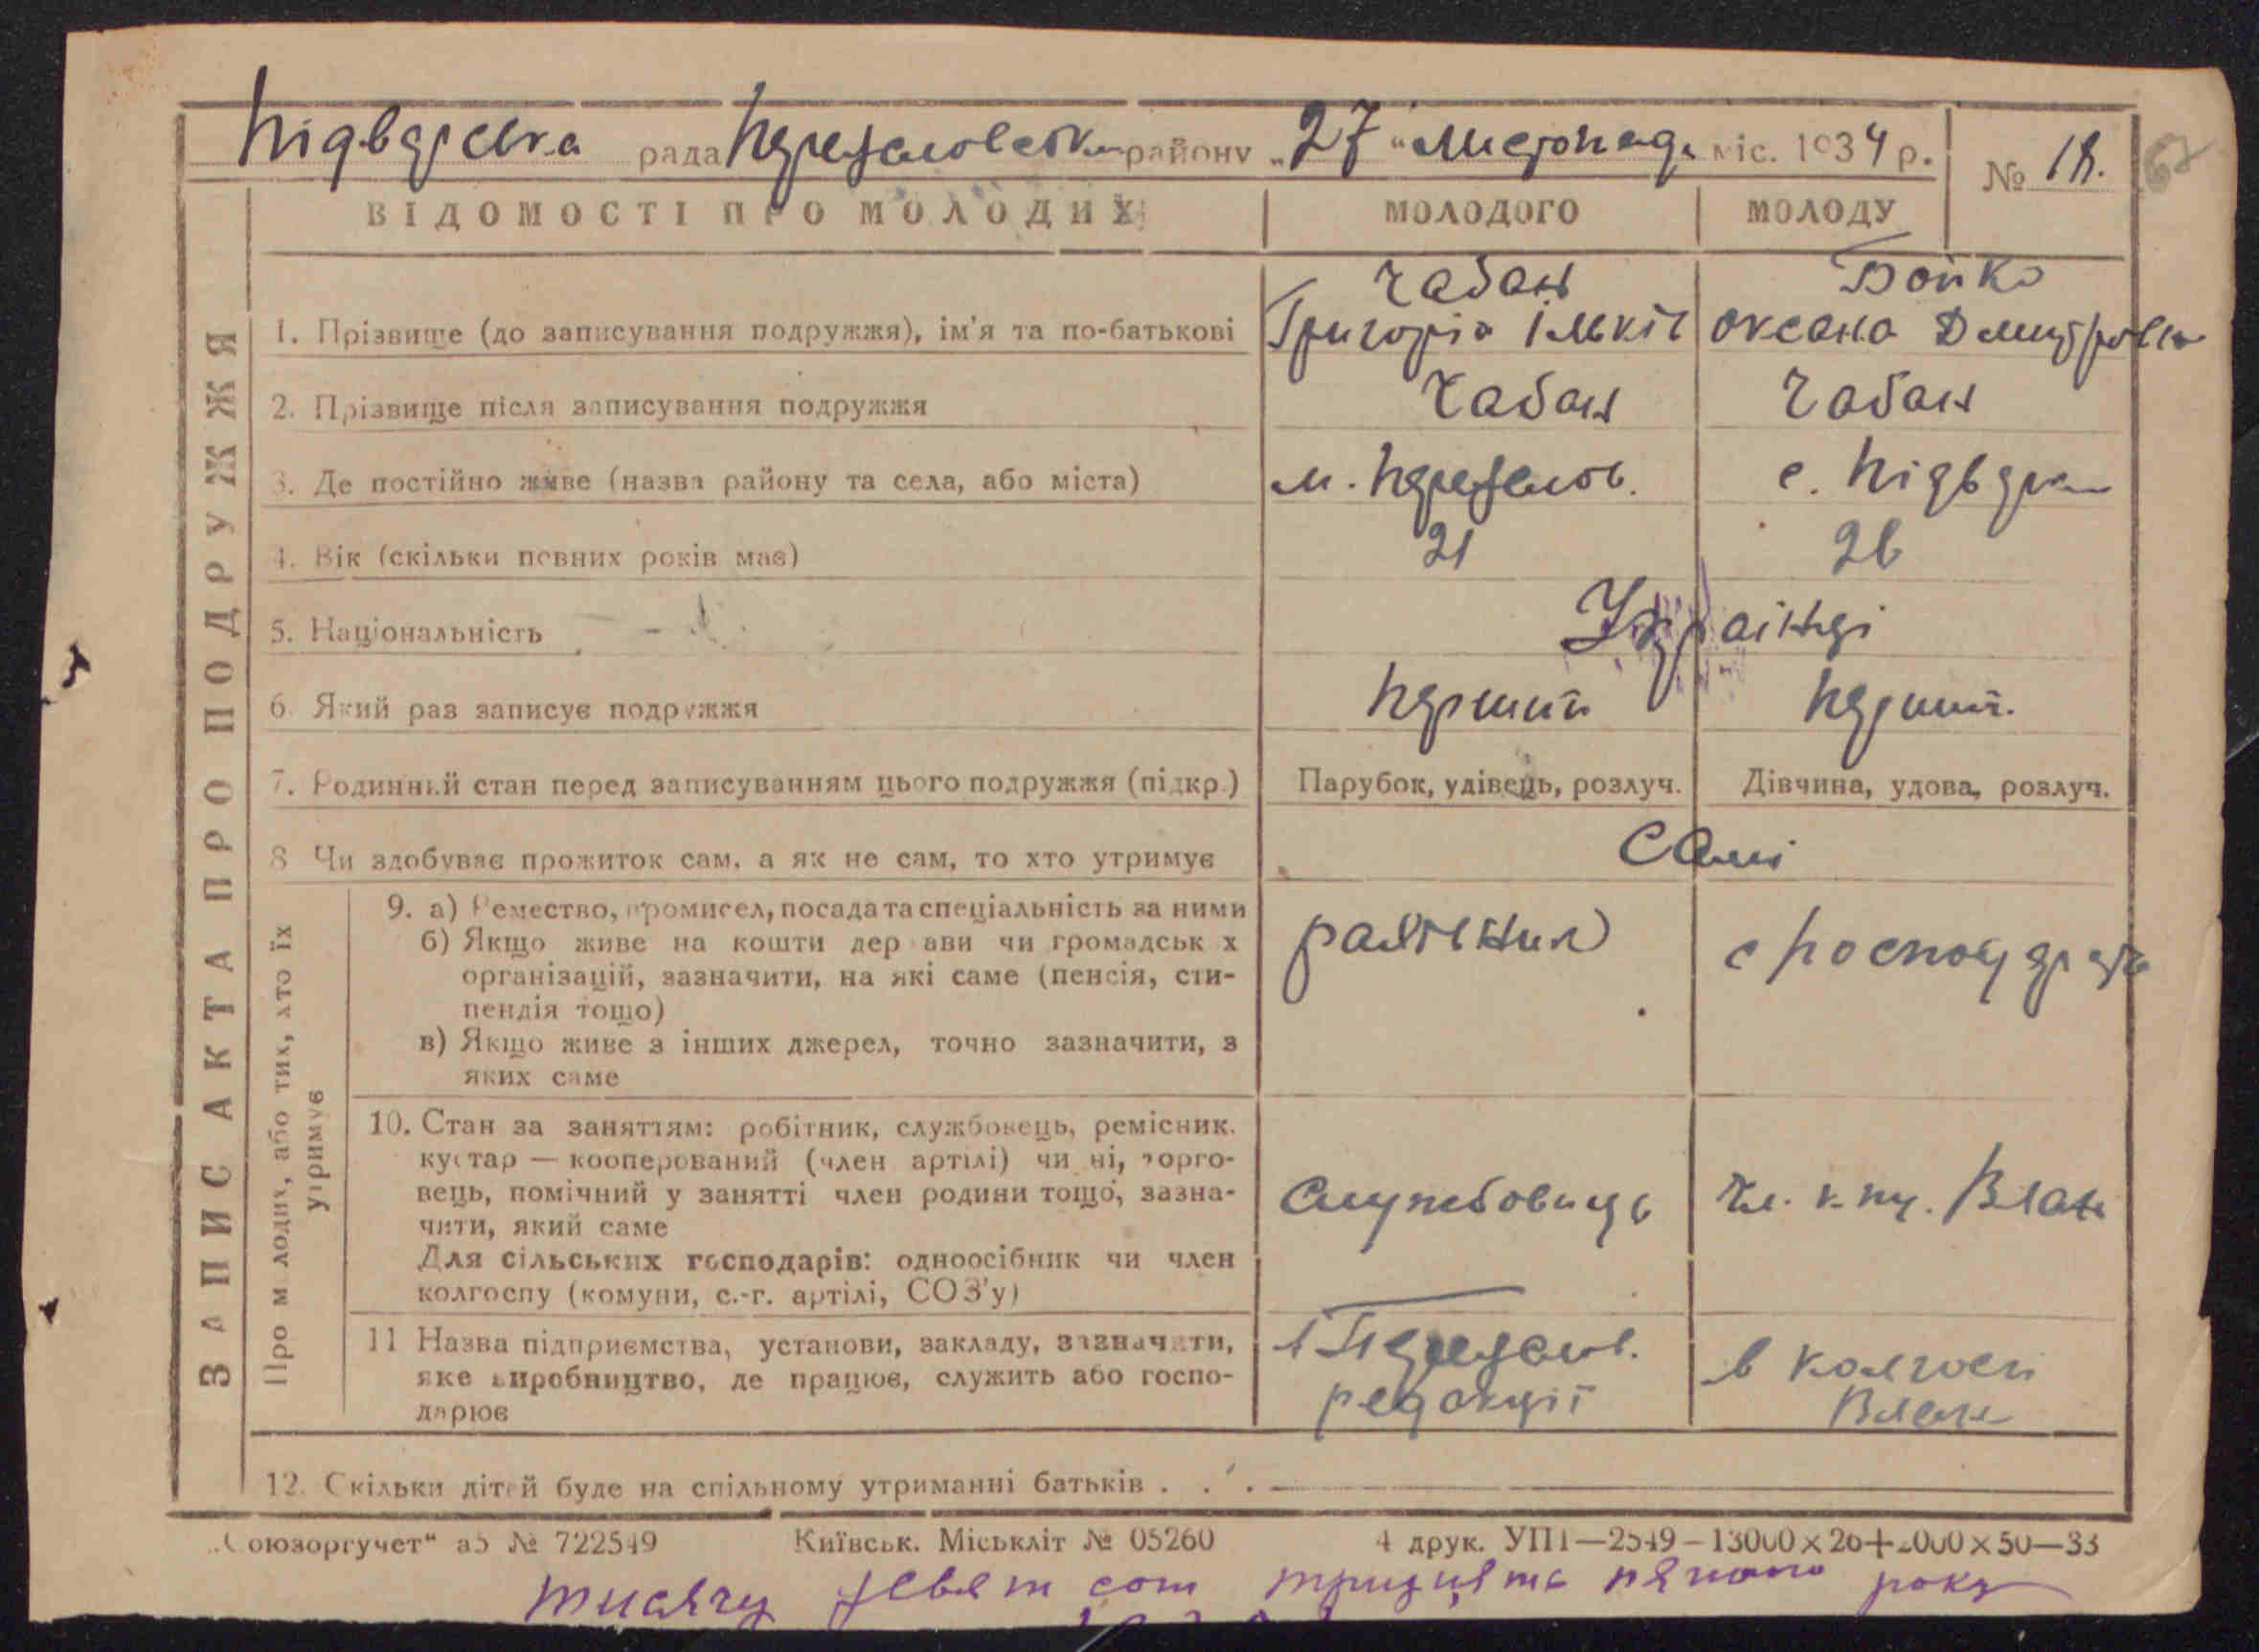 Підварська рада Переяславськ району „27“ Листопад міс. 1934 р. № 18.
67
ВІДОМОСТІ ПРО МОЛОДИХ МОЛОДОГО МОЛОДУ
ЗАПИС АКТА ПРО ПОДРУЖЖЯ
Чабан Бойко
1. Прізвище (до записування подружжя), ім'я та по-батькові Григорій Ількіч Оксана Дмитровна
2. Прізвище після записування подружжя Чабан Чабан
3. Де постійно живе (назва району та села, або міста) м. Переяслов. с. Підварки
4. Вік (скільки повних років має) 21 26
5. Національність Українці
6. Який раз записує подружжя перший перший.
7. Родинний стан перед записуванням цього подружжя (підкр.) Парубок, удівець, розлуч. Дівчина, удова, розлуч.
8 Чи здобуває прожиток сам, а як не сам, то хто утримує Самі
Про молодих, або тих, хто їх утримує
9. а) Ремество, промисел, посада та спеціальність за ними
б) Якщо живе на кошти держави чи громадських
організацій, зазначити, на які саме (пенсія, сти-
пендія тощо)
в) Якщо живе з інших джерел, точно зазначити, з
яких саме
10. Стан за заняттям: робітник, службовець, ремісник.
кустар — кооперований (член артілі) чи ні, торго-
вець, помічний у занятті член родини тощо, зазна-
чити, який саме
Службовиць чл.
Для сільських господарів: одноосібник чи член
колгоспу (комуни, с.-г. артілі, СОЗ'у)
11 Назва підприємства, установи, закладу, зазначити,
яке виробництво, де працює, служить або госпо-
дарює
Переяслов. редакції
в колгосі
12. Скільки дітей буде на спільному утриманні батьків . . .
„Союзоргучет“ а5 № 722549 Київськ. Міськліт № 05260 4 друк. УПП—2549—13000×20+2000×50—33
тисячу девятсот тридцять пятого року